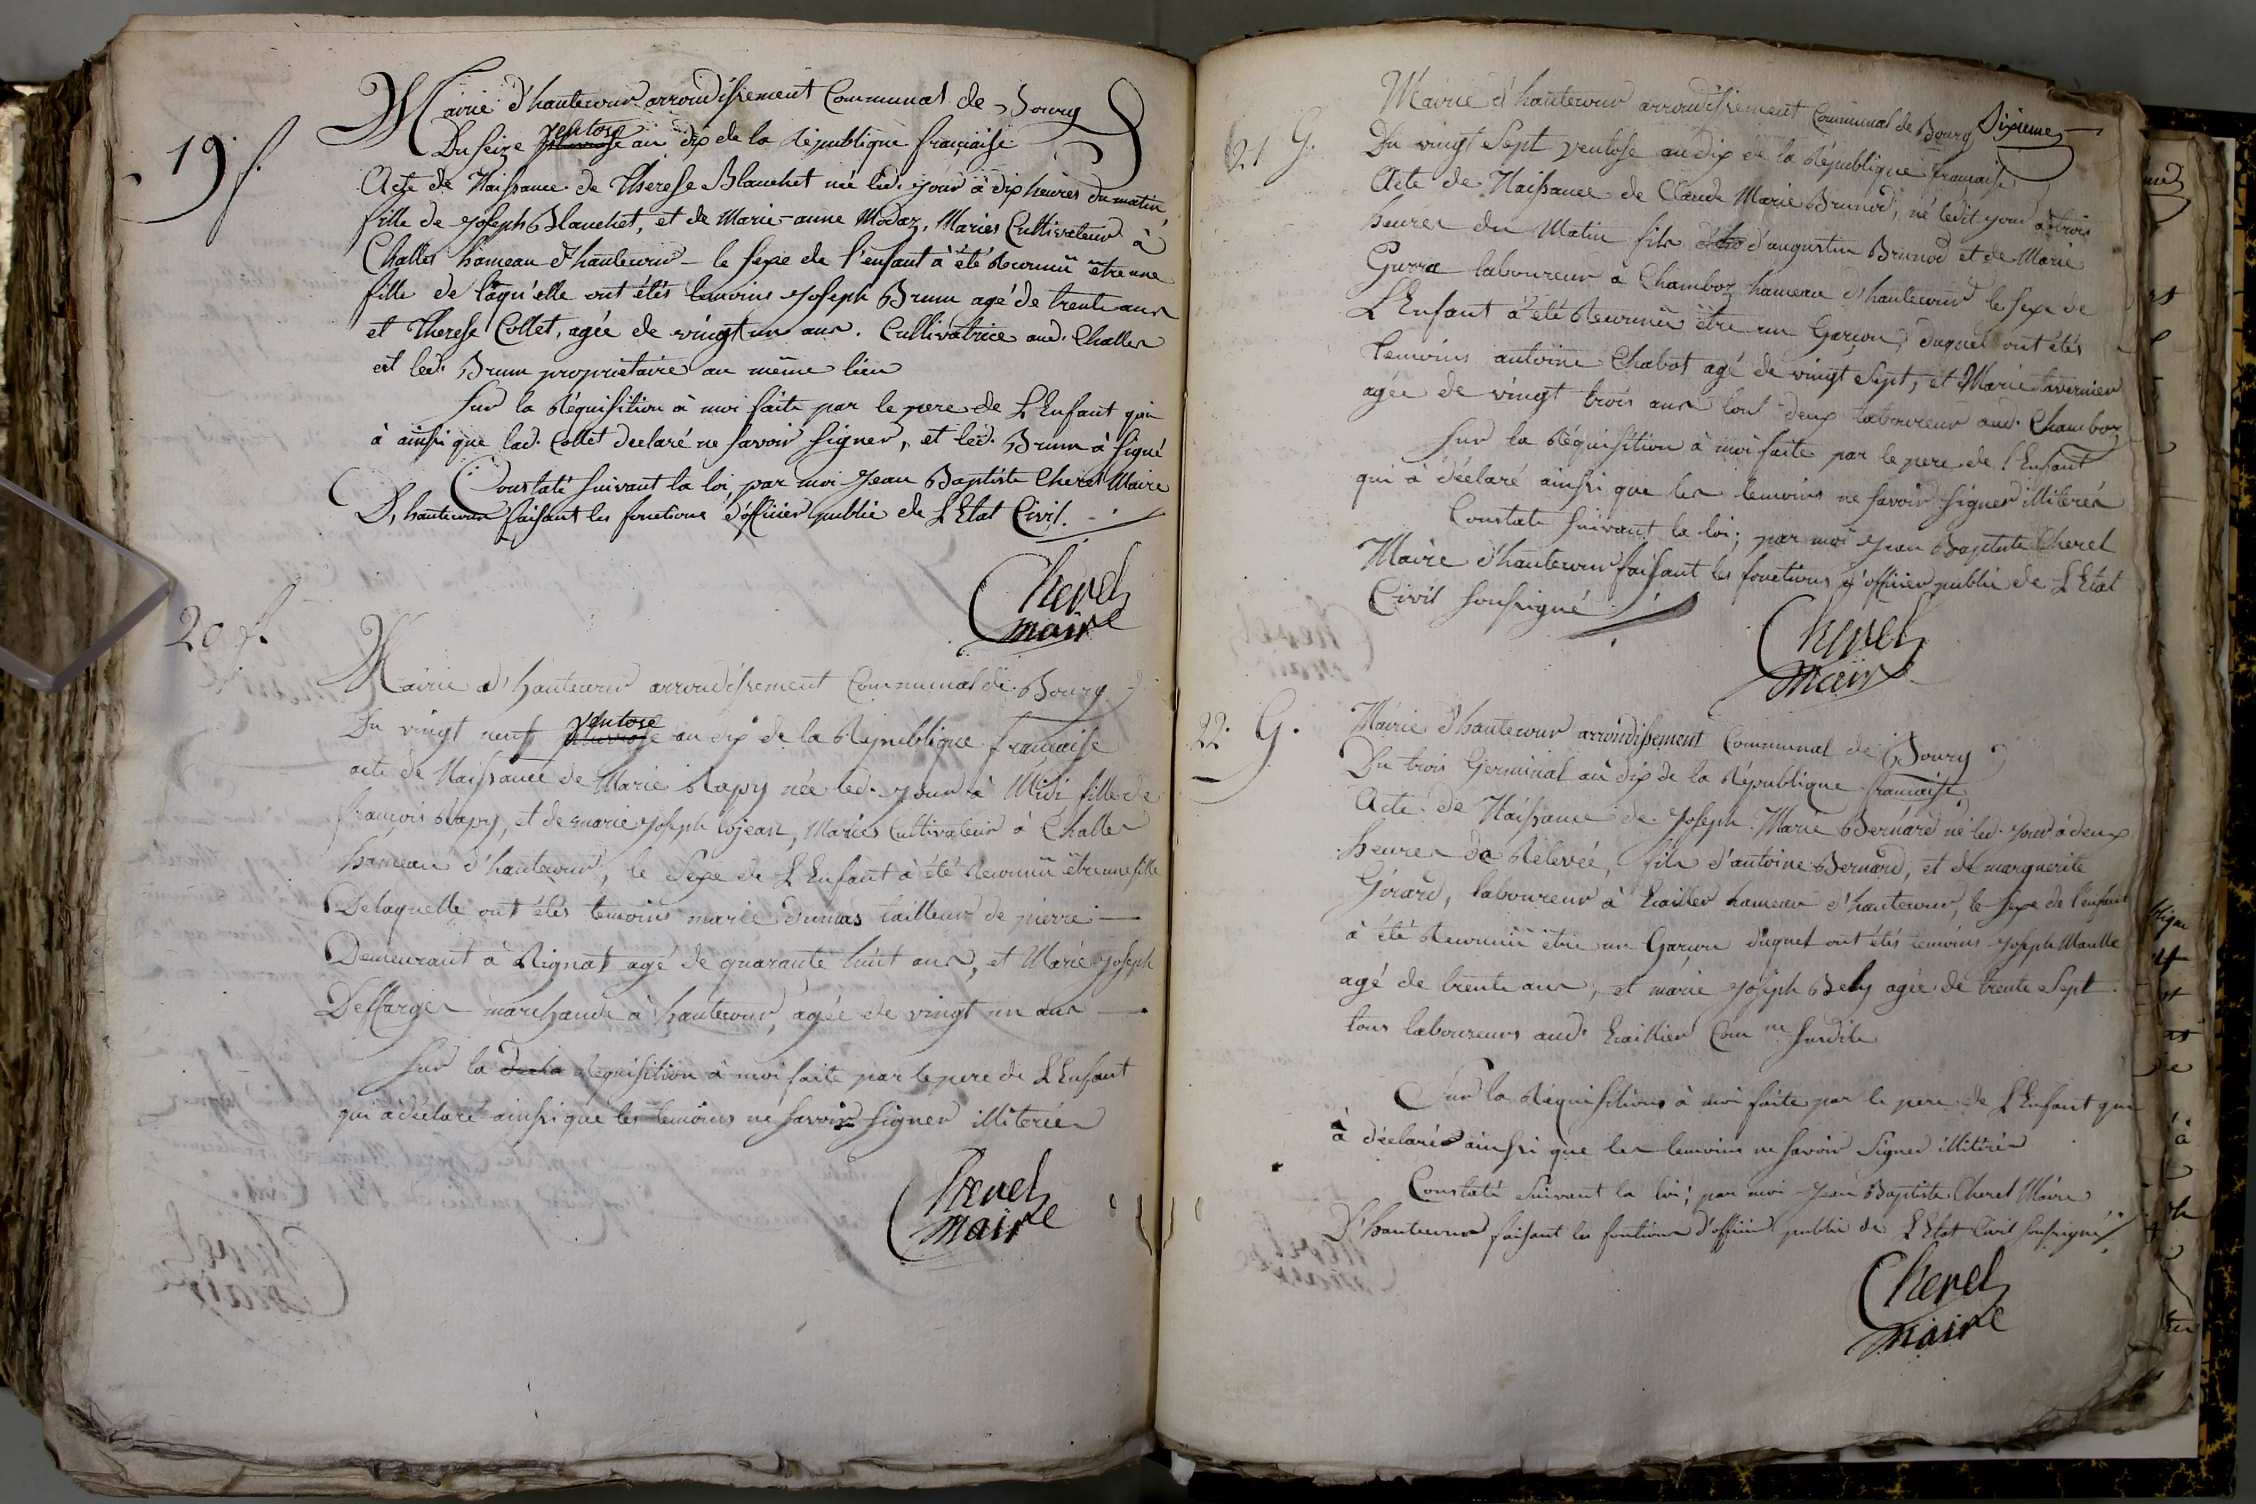 19. f.
Mairie d'hautecour arrondissement Communal de Bourg
Du seize ventose an dix de la République française
Acte de Naissance de Therese Blanchet née led. jour à dix heures du matin
fille de Joseph Blanchet, et de Marie-anne Modaz, Mariés Cultivateur à
Challes hameau d'hautecour - le sexe de l'enfant à été Reconnû être une
fille de laqu'elle ont étés temoins Joseph Brun agé de trente ans
et Therese Collet, agée de vingt un ans. Cultivatrice aud. Challes
et led. Brun propriétaire au même lieu
Sur la Réquisition à moi faite par le pere de L'Enfant qui
à ainsi que lad. Collet declaré ne savoir signer, et led. Brun à signé
Constaté suivant la loi, par moi Jean Baptiste Chevel Maire
D'hautecour faisant les fonctions d'officier public de L'Etat Civil.
Chevel
maire
20 f.
Mairie d'hautecour arrondissement Communal de Bourg
Du vingt neuf ventose an dix de la République française
acte de Naissance de Marie Rapy née led. jour à Midi fille de
françois Rapy, et de marie Joseph Cojean, Mariés Cultivateur à Challes
hameau d'hautecour, le Sexe de L'Enfant à été Reconnû être une fille
Delaquelle ont étés temoins marie Dumas tailleur de pierre
Demeurant à Rignat agé de quarante huit ans, et Marie Joseph
Deffarges marchande à hautecour, agée de vingt un ans
Sur la Réquisition à moi faite par le pere de L'Enfant
qui à déclaré ainsi que les temoins ne savoir signer illiterés
Chevel
maire
Dixieme
21 G.
Mairie d'hautecour arrondissement Communal de Bourg
Du vingt Sept ventose an dix de la République française
Acte de Naissance de Claude Marie Brunod, né ledit jour à trois
heures du Matin fils d'augustin Brunod et de Marie
Gurra laboureur à Chamboz hameau d'hautecour le sexe de
L'Enfant à été Reconnû être un Garçon, duquel ont étés
temoins antoine Chabot agé de vingt Sept, et Marie tavernier
agée de vingt trois ans tout deux laboureur aud. Chamboz
Sur la Réquisition à moi faite par le pere de l'Enfant
qui à déclaré ainsi que les temoins ne savoir signer illiterés
Constaté suivant la loi; par moi Jean Baptiste Chevel
Maire d'hautecour faisant les fonctions d'officier public de L'Etat
Civil soussigné
Chevel
maire
22. G.
Mairie d'hautecour arrondissement Communal de Bourg
Du trois Germinal an dix de la République française
Acte de Naissance de Joseph Marie Bernard né led. jour à deux
heures de Relevée, fils d'antoine Bernard, et de marguerite
Girard, laboureur à hameau d'hautecour, le sexe de l'enfant
à été Reconnû être un Garçon duquel ont étés temoins Joseph
agé de trente ans, et marie Joseph Bely agée de trente Sept
tous laboureurs aud. Com ne susdite
Sur la Réquisition à moi faite par le pere de L'Enfant qui
à déclaré ainsi que les temoins ne savoir signer illitérés
Constaté suivant la loi; par moi Jean Baptiste Chevel Maire
D'hautecour faisant les fontions d'officier public de L'Etat Civil soussigné
Chevel
maire